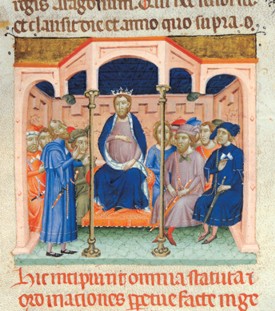 regis aragonum.
et clausit die et anno quo supra.
Hic incipiunt omnia statuta et
ordinaciones perpetue facte in ge